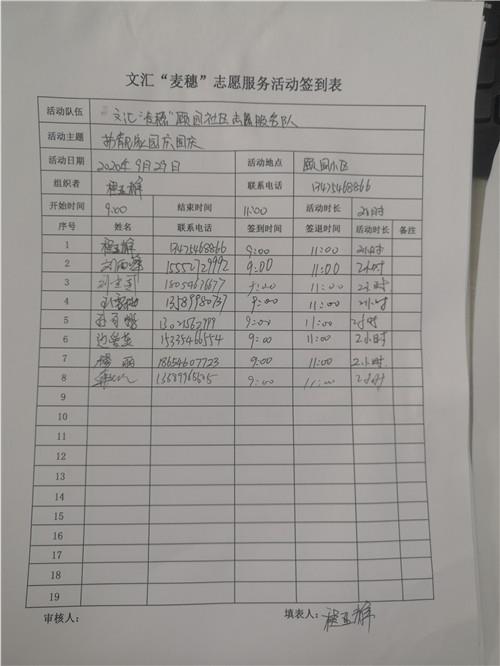 文汇“麦穗”志愿服务活动签到表
活动队伍 文汇“麦穗”颐园社区志愿服务队
活动主题 家园庆国庆
活动日期 2020年9月29日 活动地点 颐园小区
组织者 程玉静 联系电话 13475468866
开始时间 9:00 结束时间 11:00 活动时长 2小时
序号 姓名 联系电话 签到时间 签退时间 活动时长 备注
1 程玉静 13475468866 9:00 11:00 2小时
2 15552729992 9:00 11:00 2小时
3 18054671677 9:00 11:00 2小时
4 13589980737 9:00 11:00 2小时
5 9:00 11:00 2小时
6 15335466554 9:00 11:00 2小时
7 杨丽 18654607723 9:00 11:00 2小时
8 9:00 11:00 2小时
9
10
11
12
13
14
15
16
17
18
19
审核人： 填表人：程玉静